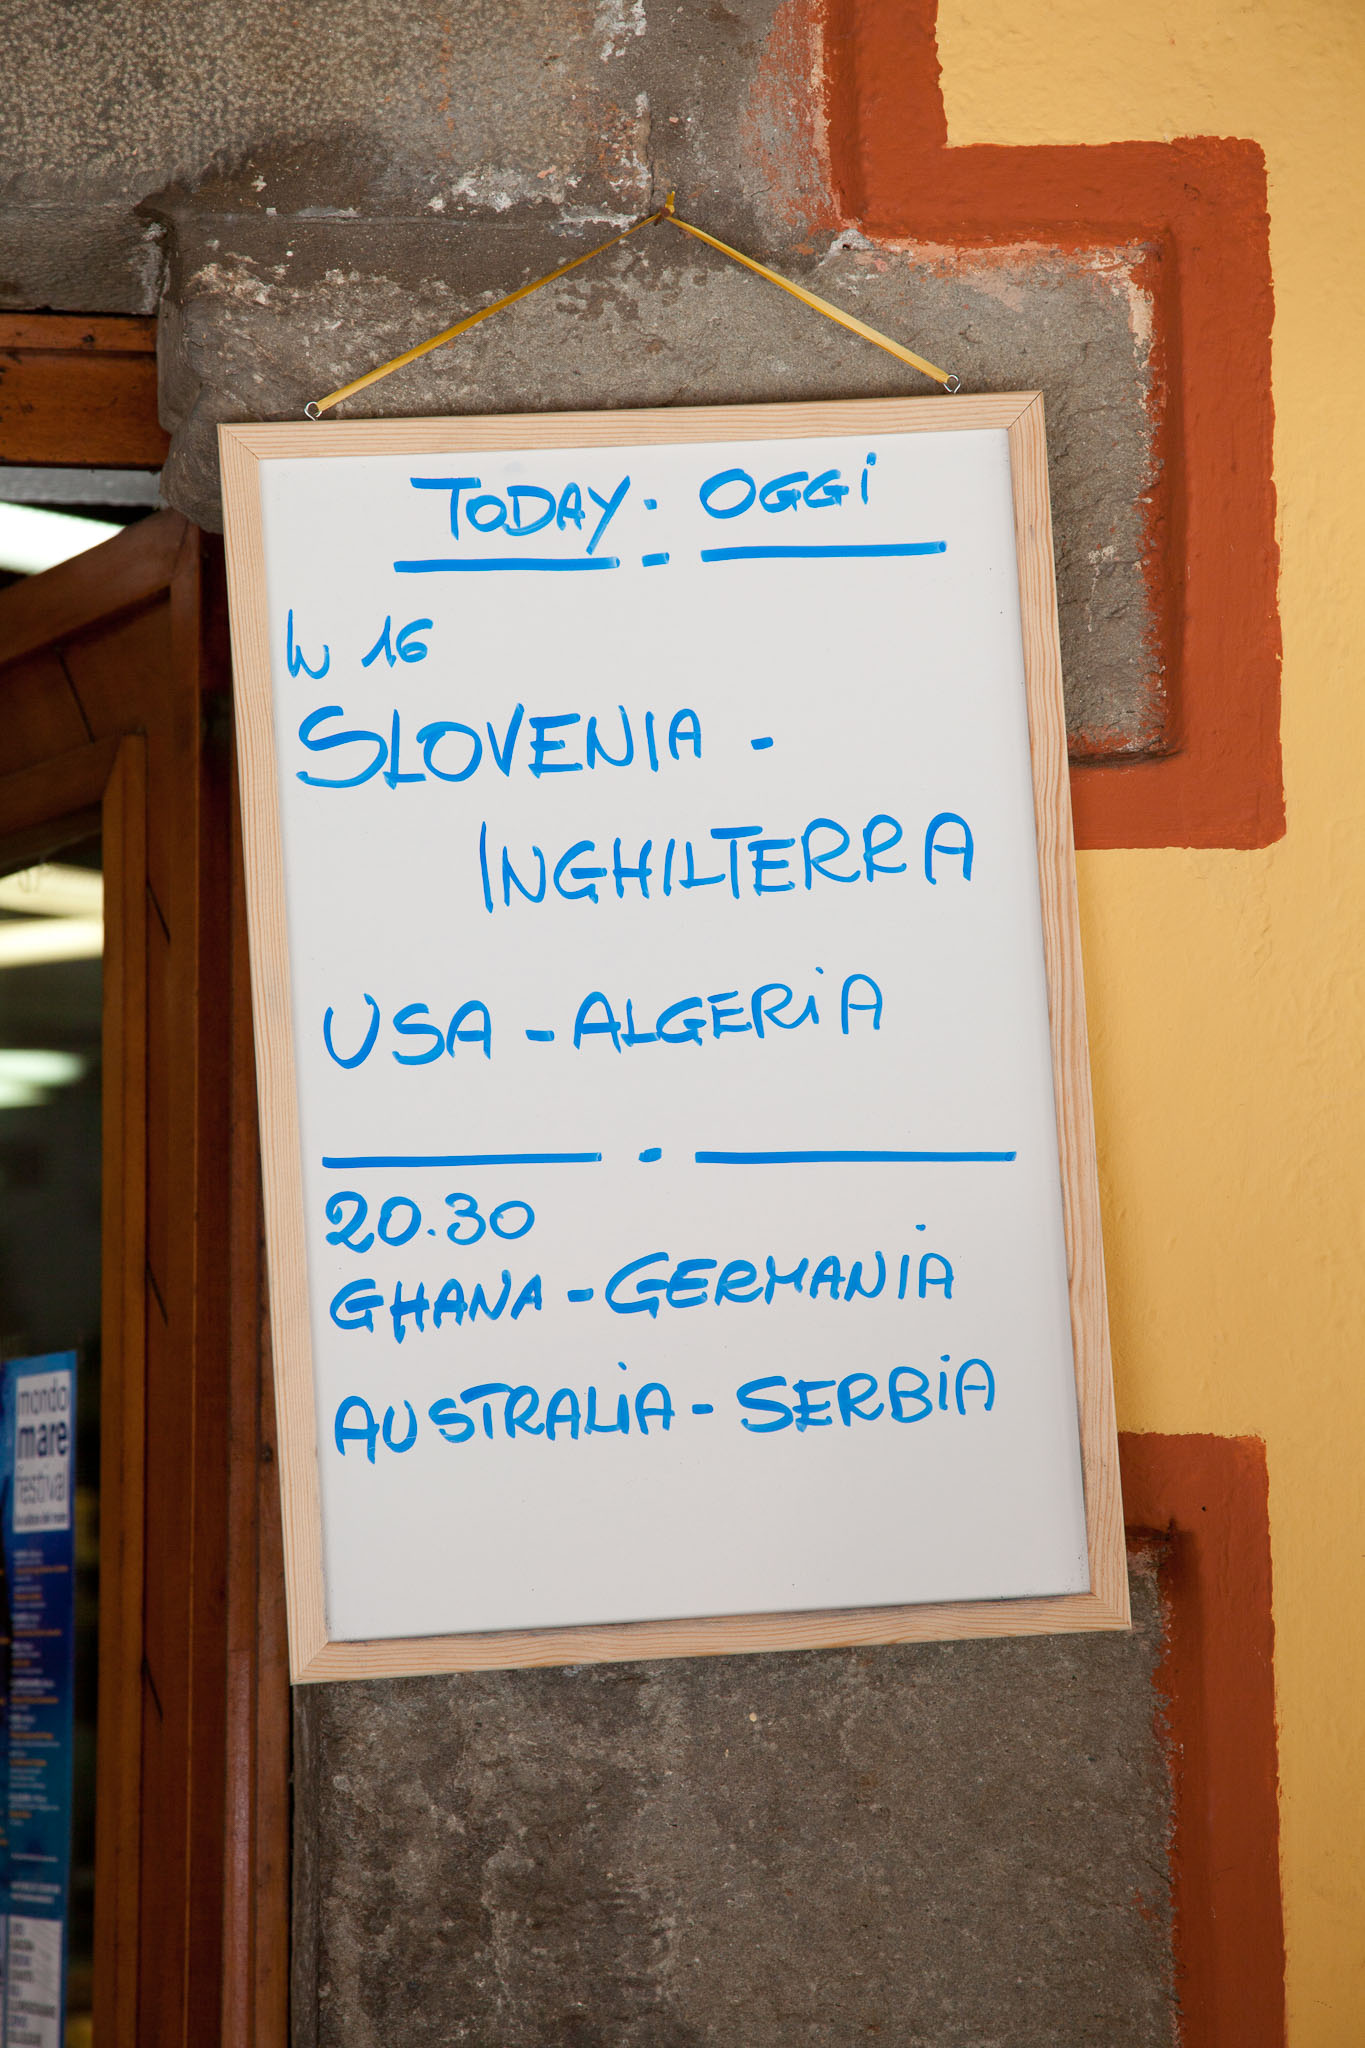 TODAY · OGGI
h 16
SLOVENIA -
INGHILTERRA
USA - ALGERIA
20.30
GHANA - GERMANIA
AUSTRALIA - SERBIA
mondo
mare
festival